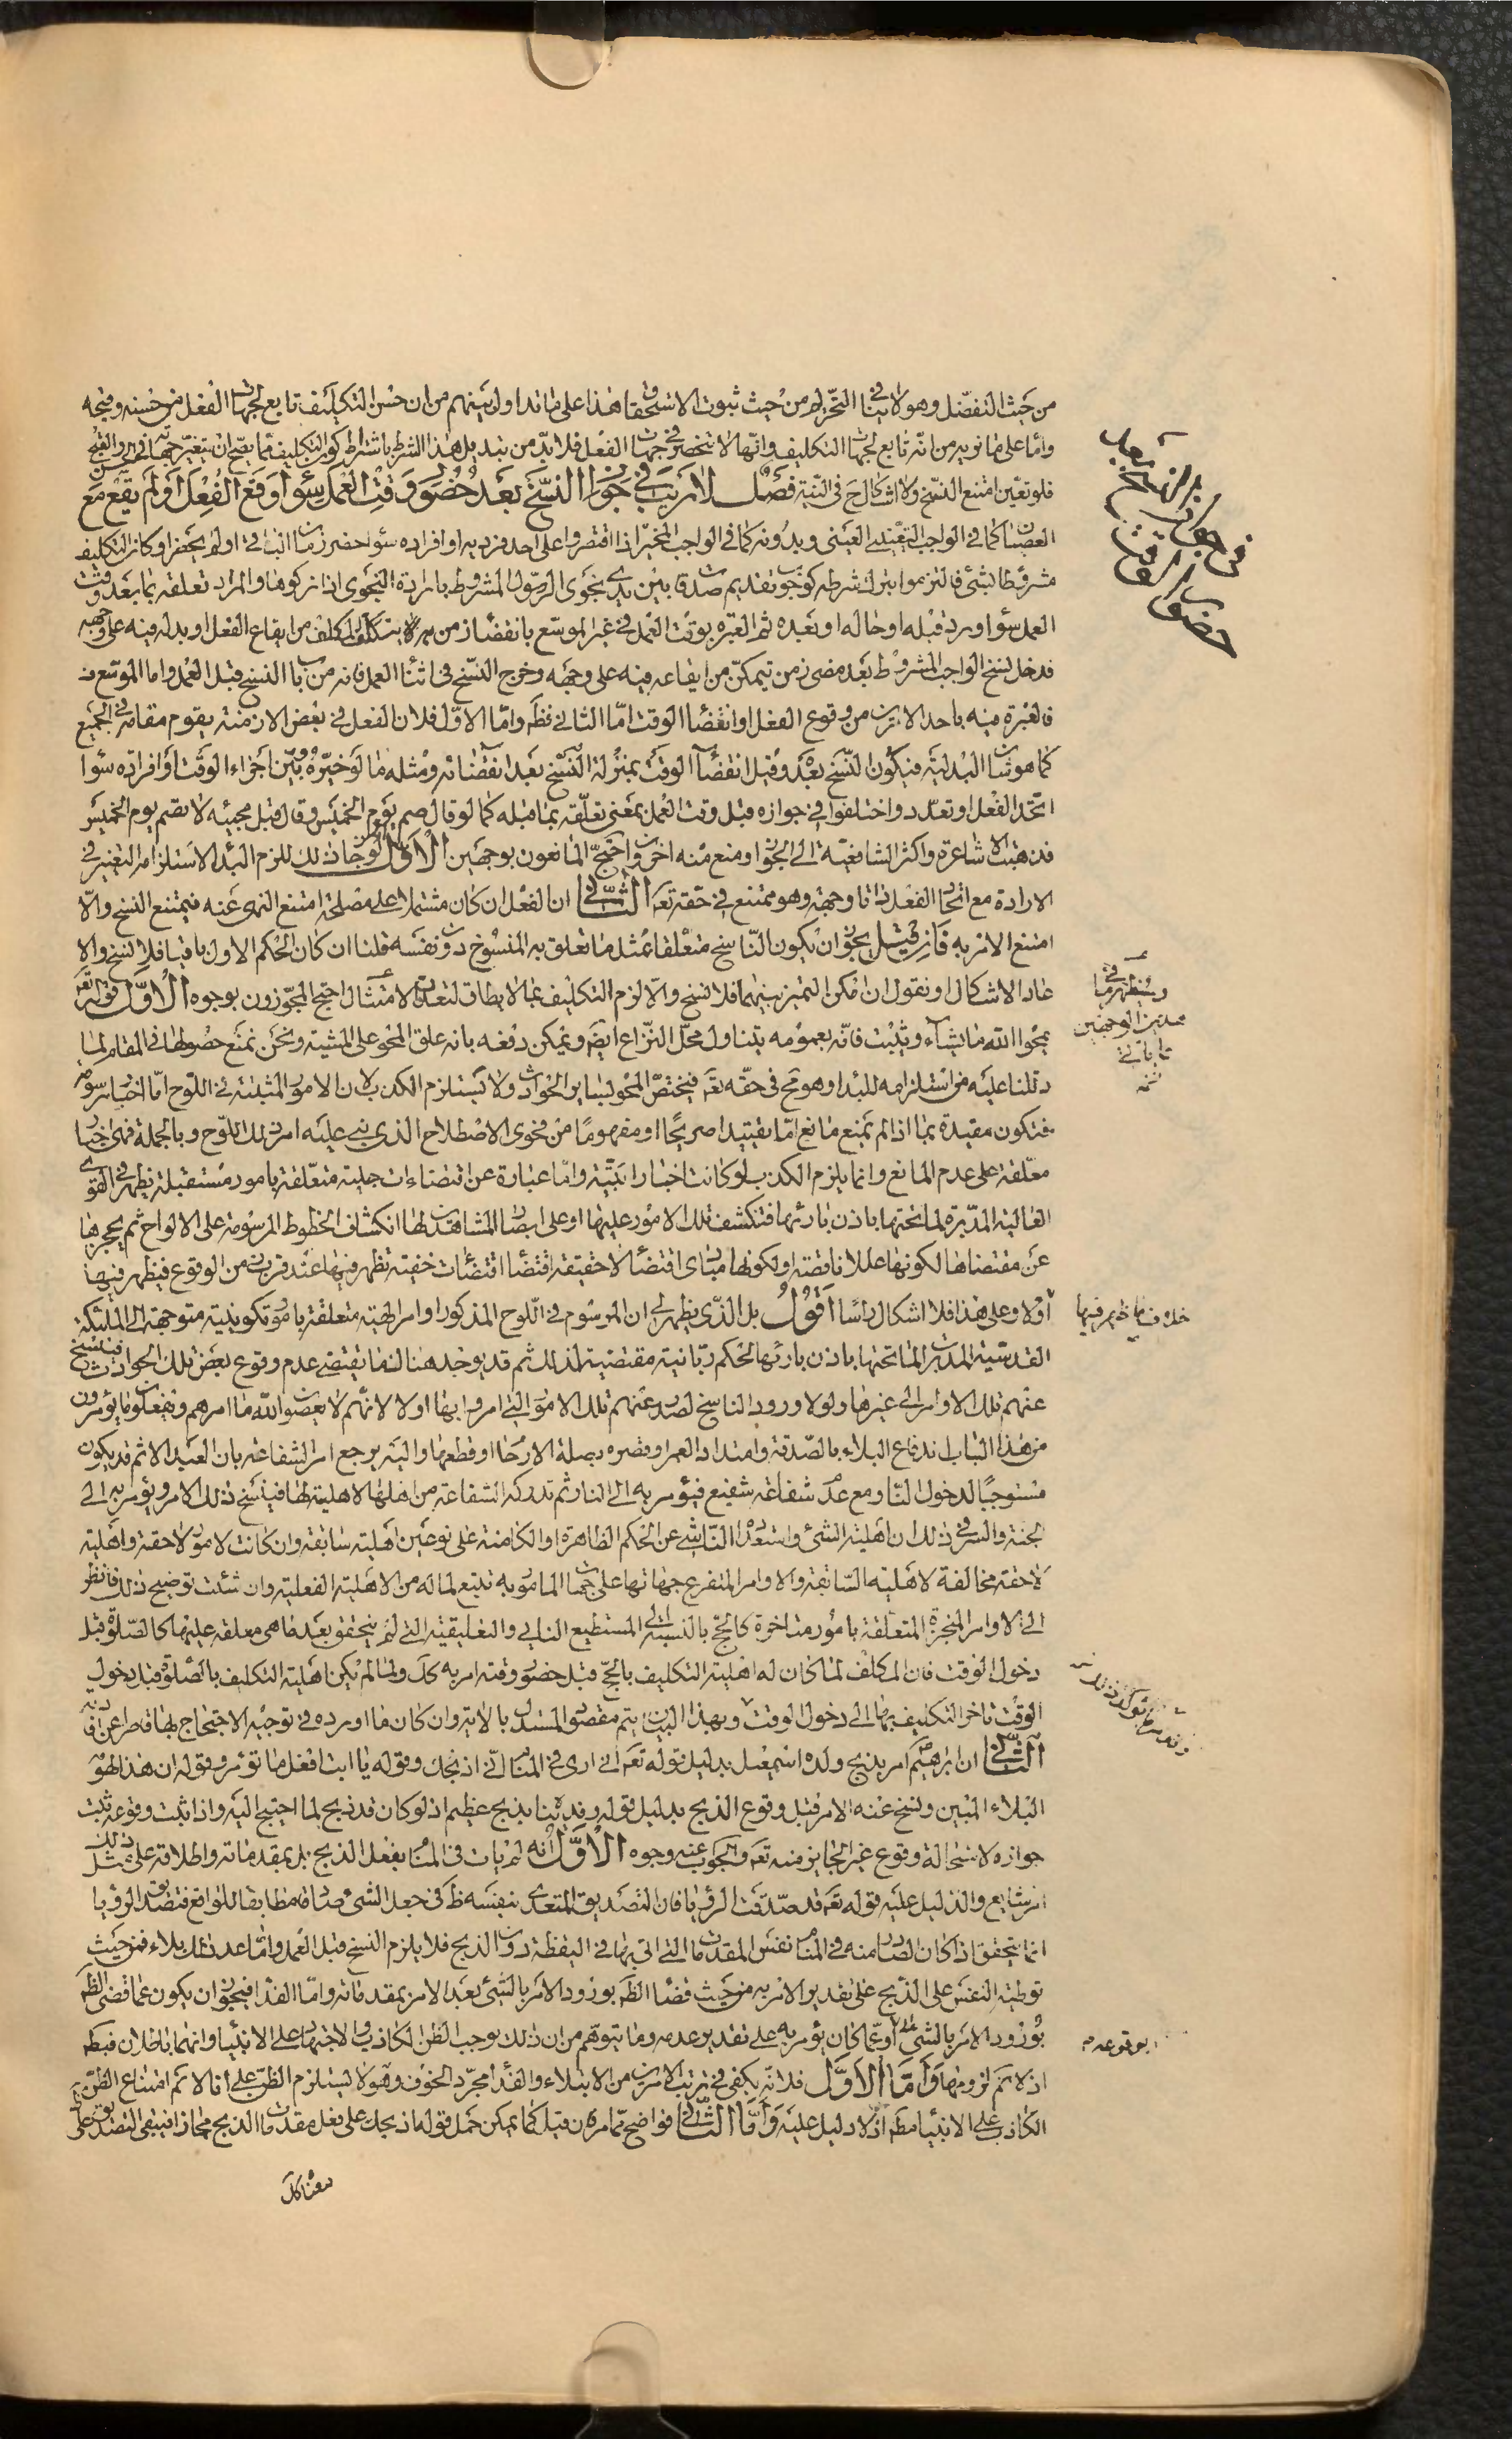 من حيث التفضل وهو لا ينافي التحريم من حيث ثبوت الاستحقاق هذا على ما تداول بينهم من ان حسن التكليف تابع لجهات الفعل من حسنه وقبحه
واما على ما نريد من انه تابع لجهات التكليف وانها لا تنحصر في جهات الفعل فلا بد من تبديل هذا الشرط باشتراط كون التكليف مما يصح ان يتغير جهاته في الحسن والقبح
فلو تعين امتنع النسخ ولا اشكال ح في التتمة فصل لا ريب في جواز النسخ بعد حضور وقت العمل سواء وقع الفعل او لم يقع مع
العصيان كما في الواجب التعييني العيني وبدونه كما في الواجب المخير اذا اقتصروا على احد فرديه او افراده سواء حضر زمان الباقي او لم يحضر او كان التكليف
مشروطا بشئ فالتزموا بترك شرطه كوجوب تقديم صدقة بين يدي نجوى الرسول المشروط بارادة النجوى اذا تركوها والمراد تعلقه بما بعد وقت
العمل سواء ورد قبله او حاله او بعده ثم العبرة بوقت العمل في غير الموسع بانقضاء زمن يتمكن المكلف من ايقاع الفعل او بدله فيه على وجهه
فدخل نسخ الواجب المشروط بعد مضى زمن تيمكن من ايقاعه فيه على وجهه وخرج النسخ في اثناء العمل فانه من باب النسخ قبل العمل واما الموسع
فالعبرة فيه باحد الامرين من وقوع الفعل او انقضاء الوقت اما الثاني فظ واما الاول فلان الفعل في بعض الازمنة يقوم مقامه في الجميع
كما هو شان البدلية فيكون النسخ بعده وقبل انقضاء الوقت بمنزلة النسخ بعد انقضائه ومثله ما لو خيره بين اجزاء الوقت او افراده سواء
اتحد الفعل او تعدد واختلفوا في جوازه قبل وقت العمل بمعنى تعلقه بما قبله كما لو قال صم يوم الخميس وقال قبل مجيئه لا تصم يوم الخميس
فذهبت الاشاعرة واكثر الشافعية الى الجواز ومنع منه اخرون واحتج المانعون بوجهين الاول لو جاز ذلك للزم البداء لاستلزامه التغير في
الارادة مع اتحاد الفعل ذاتا وجهة وهو ممتنع في حقه تعه الثاني ان الفعل ان كان مشتملا على مصلحة امتنع النهى عنه فيمتنع النسخ والا
امتنع الامر به فان قيل يجوز ان يكون الناسخ متعلقا بمثل ما تعلق به المنسوخ دون نفسه قلنا ان كان الحكم الاول باقيا فلا نسخ والا
عاد الاشكال او نقول ان امكن التميز بينهما فلا نسخ والا لزم التكليف بما لا يطاق لتعذر الامتثال احتج المجوزون بوجوه الاول قوله تعه
يمحوا الله ما يشاء ويثبت فانه بعمومه يتناول محل النزاع ايضا ويمكن دفعه بانه علق المحو على المشية ونحن نمنع حصولها في المقام لما
دللنا عليه من استلزامه للبداء وهو مح في حقه تعه فيختص المحو بساير الحوادث ولا يستلزم الكذب لان الامور المثبتة في اللوح اما اخبار مرسومة
فتكون مقيدة بما اذا لم يمنع مانع اما بتقييد صريحا او مفهوما من فحوى الاصطلاح الذي بنى عليه امر ذلك اللوح وبالجملة فهى اخبار
معلقة على عدم المانع وانما يلزم الكذب لو كانت اخبارا بتية واما عبارة عن اقتضاءات جلية متعلقة بامور مستقبلة يظهر في القوى
العالية المدبرة لما تحتها باذن بارئها فتكشف تلك الامور عليها او على ابصار المشاهدين لها انكشاف الخطوط المرسومة على الالواح ثم يحجزها
عن مقتضاها لكونها عللا ناقصة او لكونها مبادى اقتضاء لا حقيقة اقتضاء اقتضاءات خفية تظهر فيها عند قربات من الوقوع فيظهر فيها
اولا وعلى هذا فلا اشكال راسا اقول بل الذي يظهر لى ان المرسوم في اللوح المذكور اوامر الهية متعلقة بامور تكوينية متوجهة الى الملئكة
القدسية المدبرين لما تحتها باذن بارئها لحكم ربانية مقتضية لذلك ثم قد يوجد هنالك ما يقتضى عدم وقوع بعض تلك الحوادث فينسخ
عنهم تلك الاوامر الى غيرها ولولا ورود الناسخ لصدر عنهم تلك الامور التي امروا بها اولا لانهم لا يعصون الله ما امرهم ويفعلون ما يؤمرون
من هذا الباب اندفاع البلاء بالصدقة وامتداد العمر وقصره بصلة الارحام او قطعها واليه يرجع امر الشفاعة بان العبد الاثم قد يكون
مستوجبا لدخول النار مع عدم شفاعة شفيع فيؤمر به الى النار ثم تدركه الشفاعة من اهلها لاهلية لها فينسخ ذلك الامر ويؤمر به الى
الجنة والسر في ذلك ان اهلية الشئ واستعداده الناشى عن الحكم الظاهرة او الكامنة على نوعين اهلية سابقة وان كانت لامور لاحقة واهلية
لاحقة مخالفة لاهليته السابقة والاوامر المتفرع جهاتها على جهات المامور به تتبع لما له من الاهلية الفعلية وان شئت توضيح ذلك فانظر
الى الاوامر المنجزة المتعلقة بامور متاخرة كالحج بالنسبة الى المستطيع النائي والتعليقية التي لم يتحقق بعد ما هى معلقة عليها كالصلوة قبل
دخول الوقت فان المكلف لما كان له اهلية التكليف بالحج قبل حضور وقته امر به كك ولما لم يكن اهلية التكليف بالصلوة قبل دخول
الوقت تاخر التكليف بها الى دخول الوقت وبهذا البيان يتم مقصود المستدل بالاية وان كان ما اورده في توجيه الاحتجاج بها قاصرا عن
الثاني ان ابرهيم امر بذبح ولده اسمعيل بدليل قوله تعه انى ارى في المنام انى اذبحك وقوله يا ابت افعل ما تؤمر وقوله ان هذا لهو
البلاء المبين ونسخ عنه الامر قبل وقوع الذبح بدليل قوله وفديناه بذبح عظيم اذ لو كان قد ذبح لما احتيج اليه واذا ثبت وقوعه ثبت
جوازه لاستحالة وقوع غير الجايز منه تعه والجواب عنه وجوه الاول انه لم يات في المنام بفعل الذبح بل بمقدماته واطلاقه على مثل ذلك
امر شايع والدليل عليه قوله تعه قد صدقت الرؤيا فان التصديق المتعدى بنفسه ظ في جعل الشئ صادقا مطابقا للواقع فتصديق الرؤيا
انما يتحقق اذا كان الصادر منه في المنام نفس المقدمات التي اتى بها في اليقظة دون الذبح فلا يلزم النسخ قبل العمل واما عد ذلك بلاء فمن حيث
توطينه النفس على الذبح على تقدير الامر به من حيث قضاء الظ بورود الامر بالشئ بعد الامر بمقدماته واما الفداء فيجوز ان يكون عما قضى الظ
بورود الامر بالشئ او عما كان يؤمر به على تقدير عدمه وما يتوهم من ان ذلك يوجب الظن الكاذب والاجتهاد على الانبياء وانهما باطلان
اذ لا نم لزومها واما الاول فلانه يكفى في ترتيب الامرين من الابتلاء والفداء مجرد الخوف وهو لا يستلزم الظن على انا لا نم امتناع الظن
الكاذب على الانبياء مط اذ لا دليل عليه واما الثاني فواضح مما مر فان قيل كما يمكن حمل قوله اذبحك على فعل مقدمات الذبح مجازا فيبقى التصديق على
معناه كك
في جواز النسخ بعد
حضور الوقت
ويظهر في
هذين الوجهين
ما ياتي
خلاف ما ظهر فيها
بوقوعه